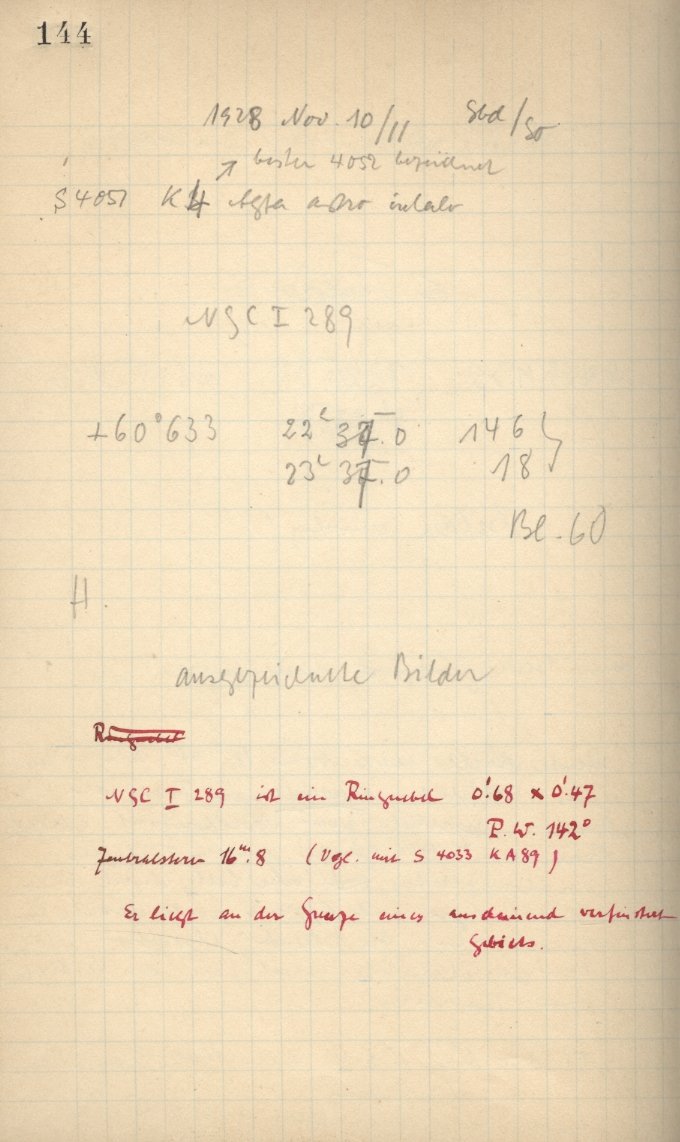 144
1928 Nov. 10/11 Sbd/So
4052 bezeichnet
S 4051 K 4 Agfa astro isolar
NGC I 289
+60°633 22 37.0 146
23 37.0 18
Bl. 60
H.
ausgezeichnete Bilder
Ringnebel
NGC I 289 ist ein Ringnebel 0'.68 × 0'.47
P.W. 142°
Zentralstern 16m.8 (Vgl. mit S 4033 KA89)
Er liegt an der Grenze eines anscheinend verfinstert
Gebiets.